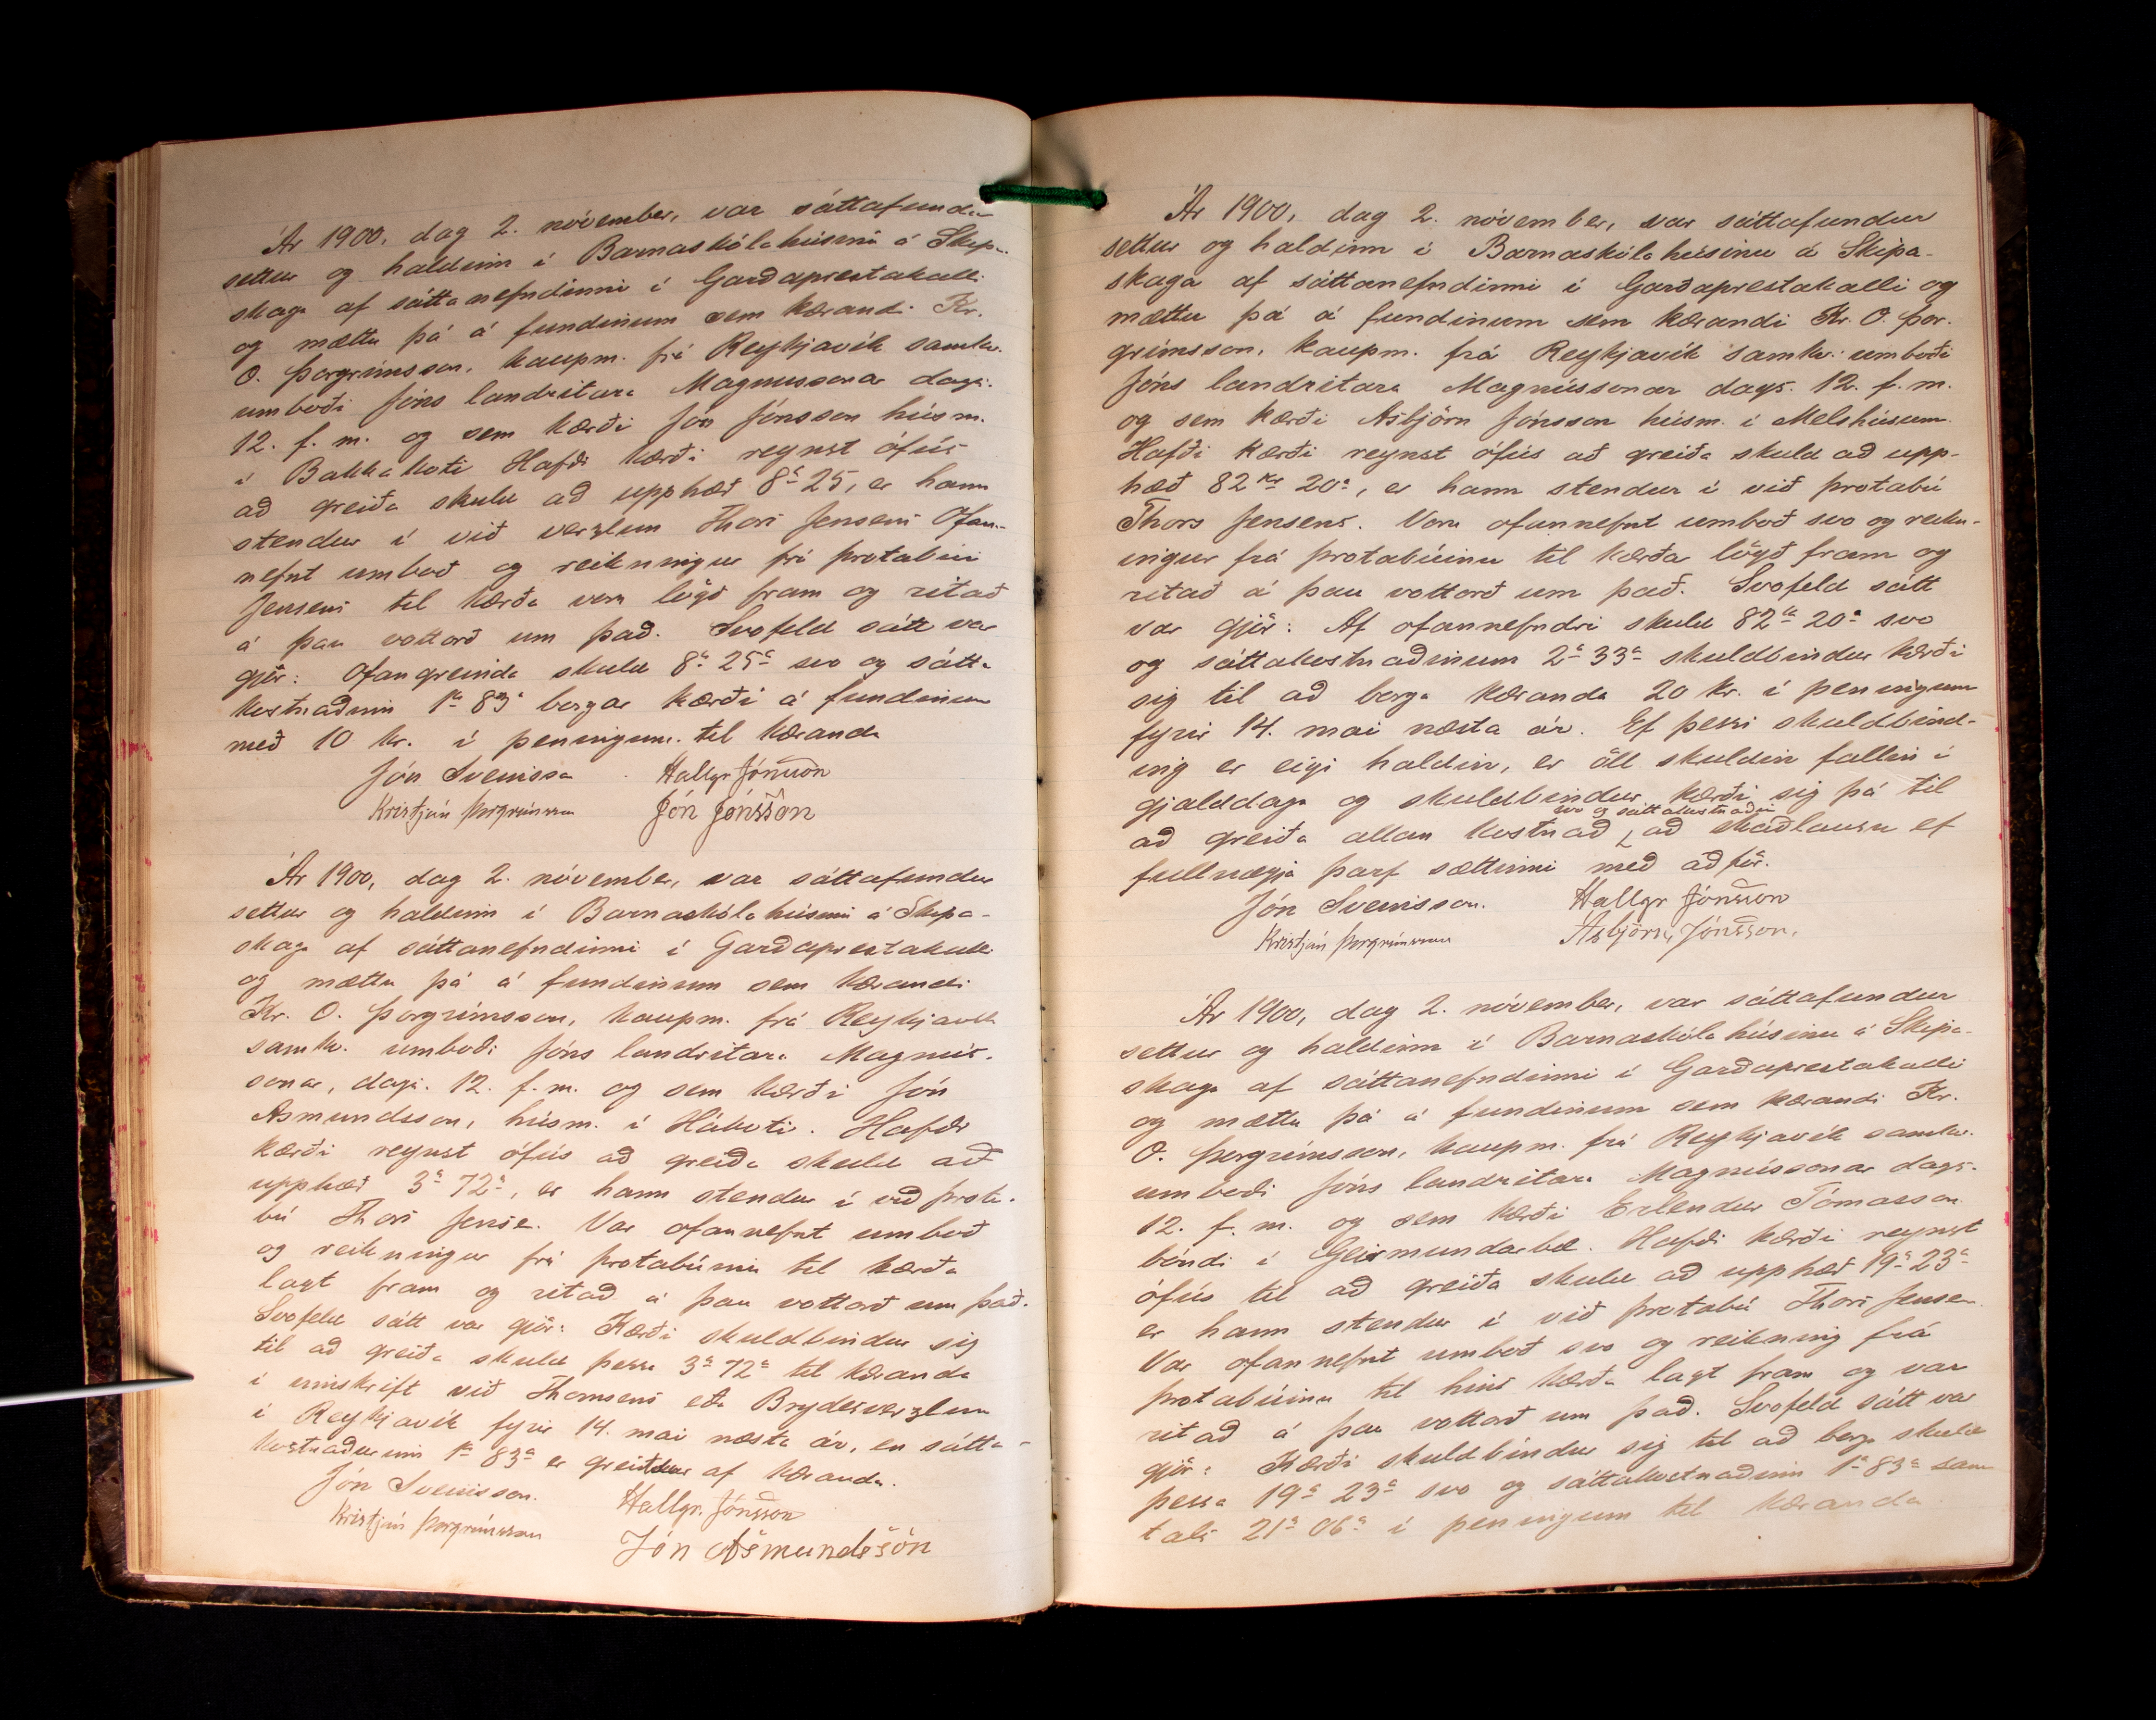 Ár 1900, dag 2. nóvember, var sáttafundur
settur og haldinn í Barnaskólahúsinu á Skipa-
skaga af sáttanefndinni í Garðaprestakalli
og mættu þá á fundinum sem kærandi Kr.
O. Þorgrímsson, kaupm. frá Reykjavík samkv.
umboði Jóns landritara Magnussonar dags.
12. f. m. og sem kærði Jón Jónsson húsm.
í Bakkakoti Hafði kærði reynst ófús
að greiða skuld að upphæð 8 kr 25, er hann
stendur í við verzlun Thors Jensens Ofan-
nefnt umboð og reikningur frá protabúi
Jensens til kærða voru lögð fram og ritað
á þau vottorð um það. Svofeld sátt var
gjör: Ofangreinda skuld 8 kr 25 a svo og sátta
kostnaðinn 1 kr 83 a borgar kærði á fundinum
með 10 kr. í peningum til kæranda
Jón Sveinsson Hallgr Jónsson
Kristján Þorgrímsson Jón Jónsson
Ár 1900, dag 2. nóvember, var sáttafundur
settur og haldinn í Barnaskólahúsinu á Skipa-
skaga af sáttanefndinni í Garðaprestakalli
og mættu þá á fundinum sem kærandi
Kr. O. Þorgrímsson, kaupm. frá Reykjavík
samkv. umboði Jóns landritara Magnús-
sonar, dags. 12. f. m. og sem kærði Jón
Asmundsson, húsm. í Hákoti. Hafði
kærði reynst ófús að greiða skuld að
upphæð 3 kr 72 a, er hann stendur í við prota-
bú Thors Jense. Var ofannefnt umboð
og reikningur frá protabúinu til kærða
lagt fram og ritað á þau vottorð um það.
Svofeld sátt var gjör: Kærði skuldbindur sig
til að greiða skuld þessa 3 kr 72 a til kæranda
í innskrift við Thomsens eða Brydesverzlun
í Reykjavík fyrir 14. mai næsta ár, en sátta-
kostnaðurinn 1 kr 83 a er greiddur af kæranda.
Jón Sveinsson. Hallgr. Jónsson
Kristján Þorgrímsson Jón Asmundsson
Ár 1900, dag 2. nóvember, var sáttafundur
settur og haldinn í Barnaskólahúsinu á Skipa-
skaga af sáttanefndinni í Garðaprestakalli og
mættu þá á fundinum sem kærandi Kr. O. Þor-
grímsson, kaupm. frá Reykjavík samkv. umboði
Jóns landritara Magnússonar dags. 12. f. m.
og sem kærði Asbjörn Jónsson húsm. í Melshúsum.
Hafði kærði reynst ófús að greiða skuld að upp-
hæð 82 kr 20 a, er hann stendur í við protabú
Thors Jensens. Voru ofannefnt umboð svo og reikn-
ingur frá protabúinu til kærða lögð fram og
ritað á þau vottorð um það. Svofeld sátt
var gjör: Af ofannefndri skuld 82 kr 20 a svo
og sáttakostnaðinum 2 kr 33 a skuldbindur kærði
sig til að borga kæranda 20 kr. í peningum
fyrir 14. mai næsta ár. Ef þessi skuldbind-
ing er eigi haldin, er öll skuldin fallin í
gjalddaga og skuldbindur kærði sig þá til
svo og sáttakostnaðinn
að greiða allan kostnað að skaðlausu ef
fullnægja þarf sættinni með aðför.
Jón Sveinsson. Hallgr Jónsson
Kristján Þorgrímsson Asbjörn Jónsson,
Ár 1900, dag 2. nóvember, var sáttafundur
settur og haldinn í Barnaskólahúsinu á Skipa-
skaga af sáttanefndinni í Garðaprestakalli
og mættu þá á fundinum sem kærandi Kr.
O. Þorgrímsson, kaupm. frá Reykjavík samkv.
umboði Jóns landritara Magnússonar dags.
12. f. m. og sem kærði Erlendur Tómasson
bóndi í Geirmundarbæ. Hafði kærði reynst
ófús til að greiða skuld að upphæð 19 kr 23 a
er hann stendur í við protabú Thors Jensen
Var ofannefnt umboð svo og reikning frá
protabúinu til hins kærða lagt fram og var
ritað á þau vottorð um það. Svofeld sátt var
gjör: Kærði skuldbindur sig til að borga skuld
þessa 19 kr 23 a svo og sáttakostnaðinn 1 kr 83 a sam
tals 21 kr 06 a í peningum til kæranda